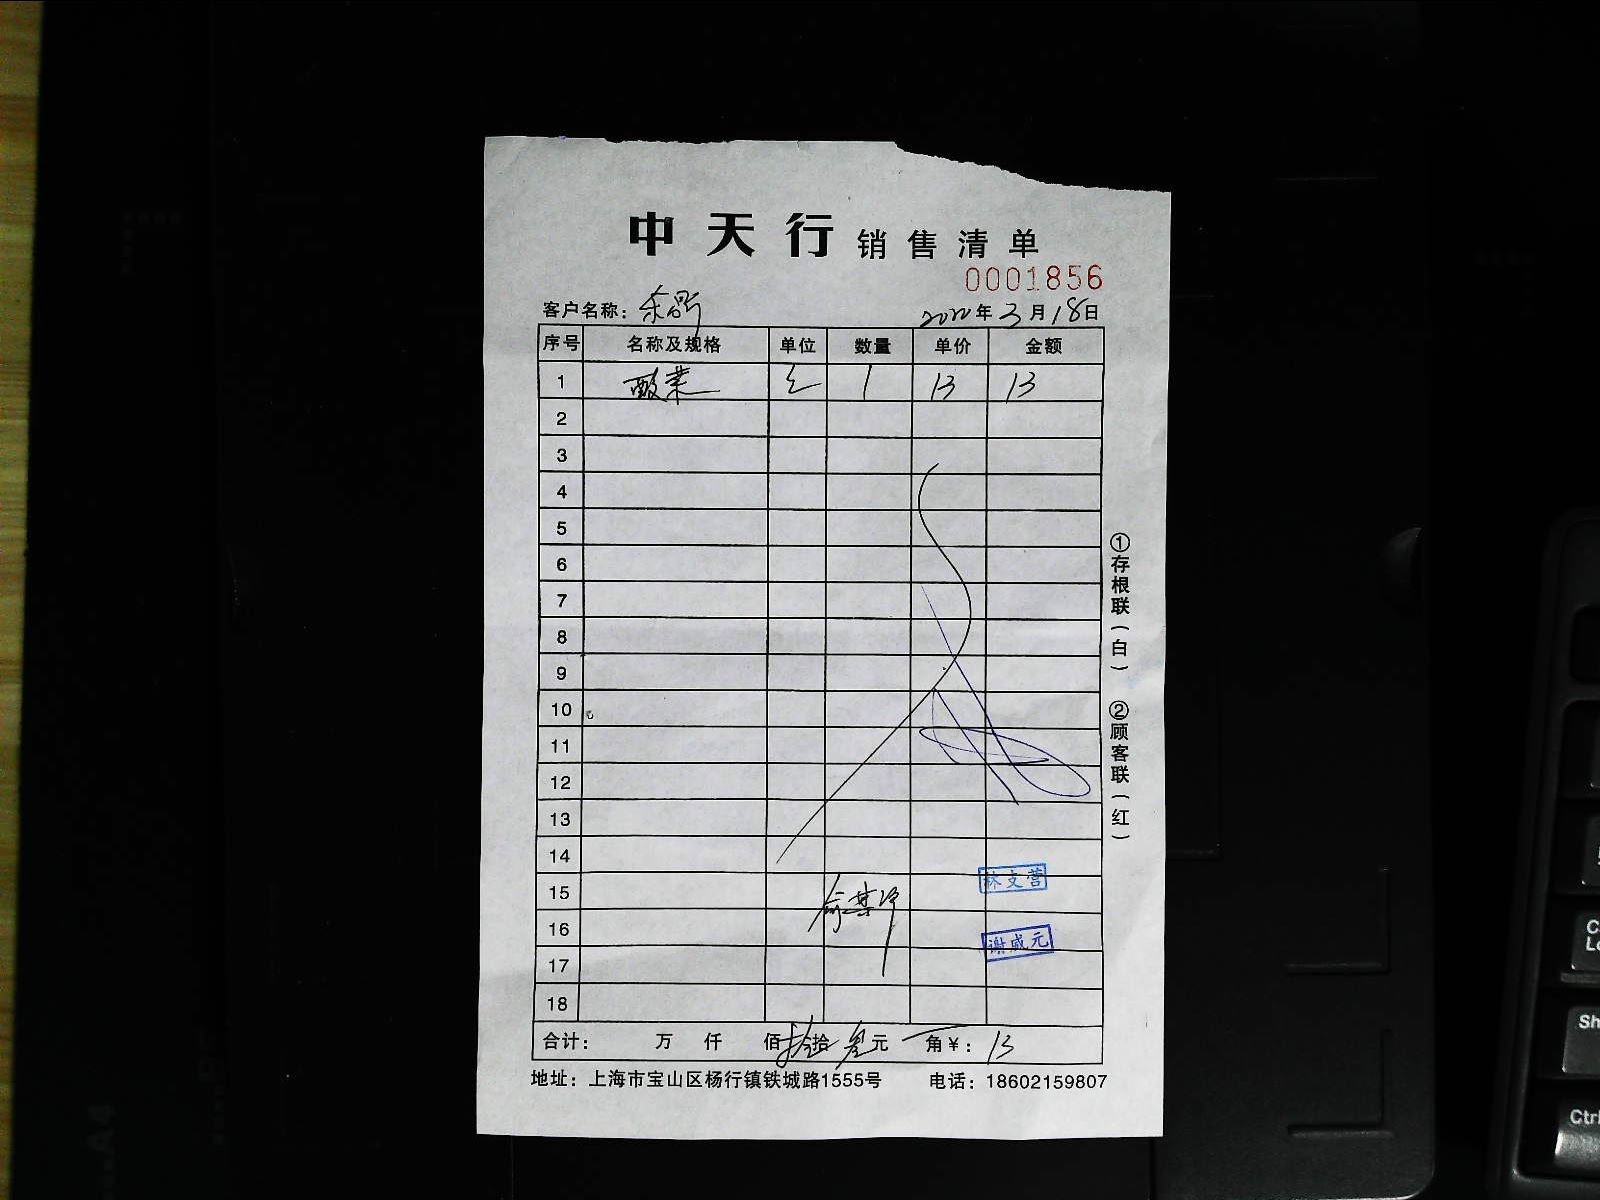 中天行 销售清单
0001856
客户名称：
2022年3月18日
序号 名称及规格 单位 数量 单价 金额
1 酸菜 1 13 13
2
3
4
5
6
7
8
9
10
11
12
13
14
15
16
17
18
林支营
谢成元
合计： 万 仟 佰 拾 叁元 角￥：13
地址：上海市宝山区杨行镇铁城路1555号 电话：18602159807
①存根联（白） ②顾客联（红）
A4
Ctrl